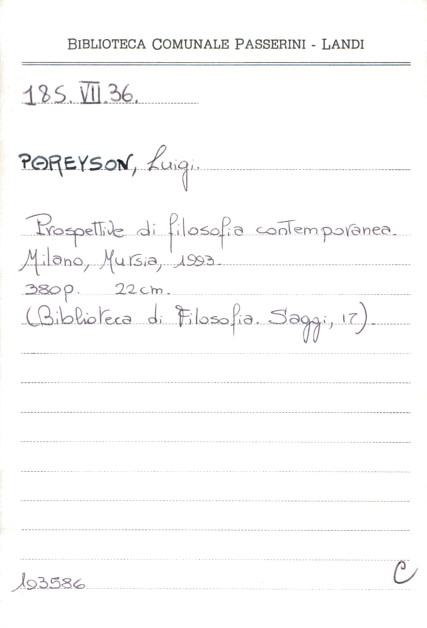 BIBLIOTECA COMUNALE PASSERINI - LANDI
185. VII.36.
PAREYSON, Luigi.
Prospettive di filosofia contemporanea.
Milano, Mursia, 1993.
380p. 22cm.
(Biblioteca di Filosofia. Saggi, 17).
193586
C